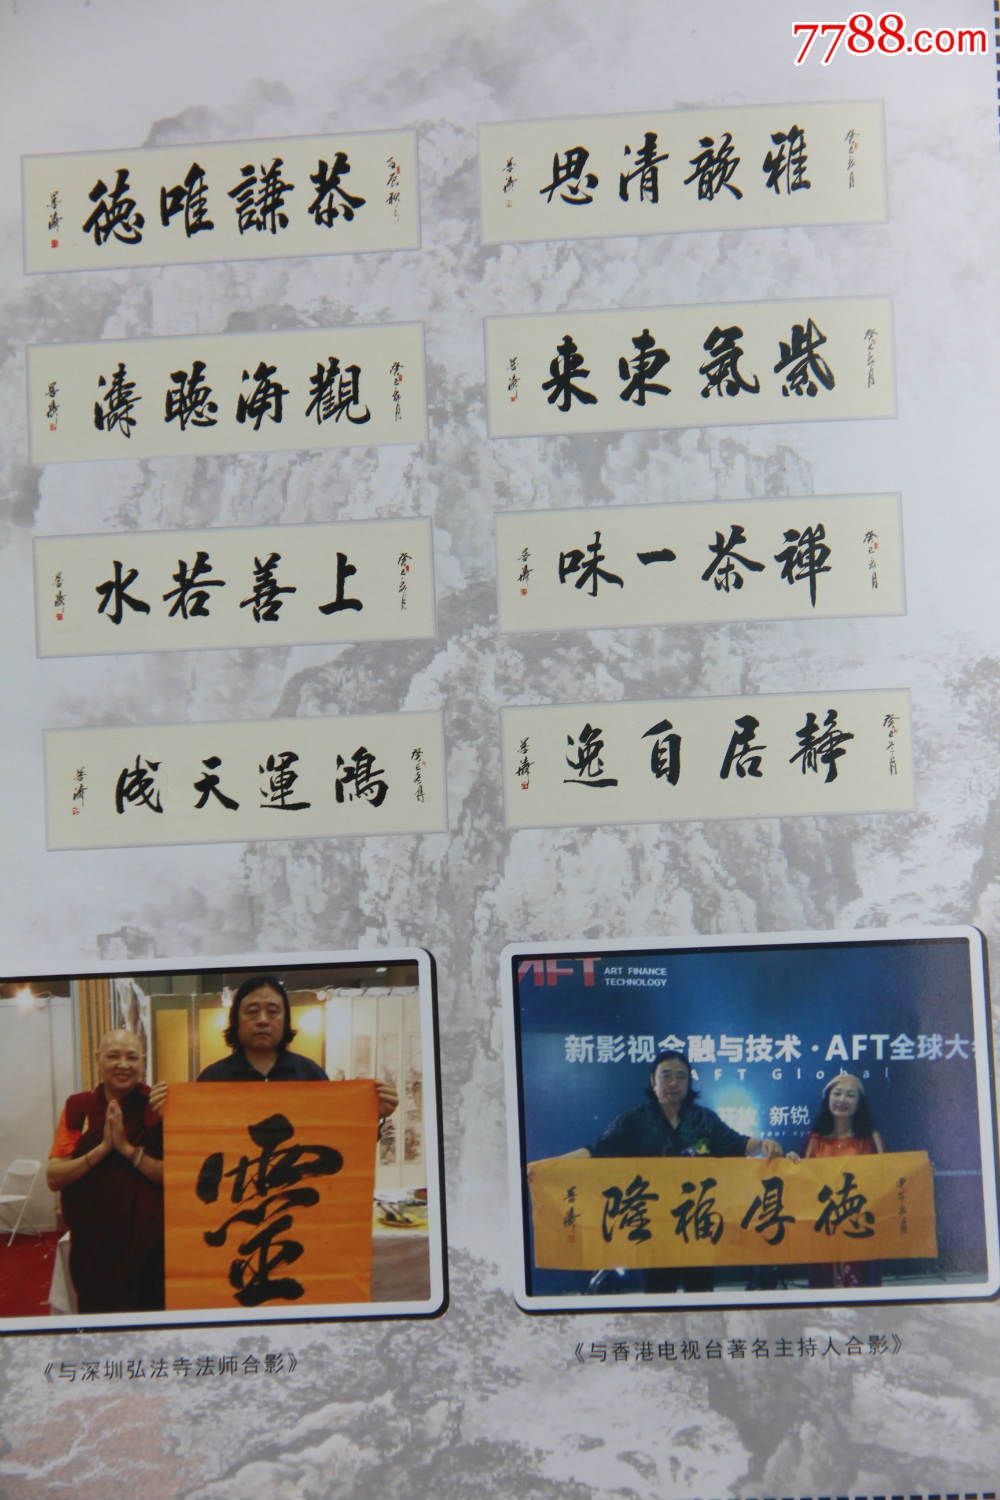 7788.com
恭謙唯德
雅韻清思
癸巳年月
觀海聽濤
癸巳年月
紫氣東来
癸巳年月
上善若水
癸巳年月
禅茶一味
癸巳年月
鴻運天成
静居自逸
靈
AFT ART FINANCE
TECHNOLOGY
新影视金融与技术·AFT全球大
AFT Global
新锐
德厚福隆
《与深圳弘法寺法师合影》
《与香港电视台著名主持人合影》